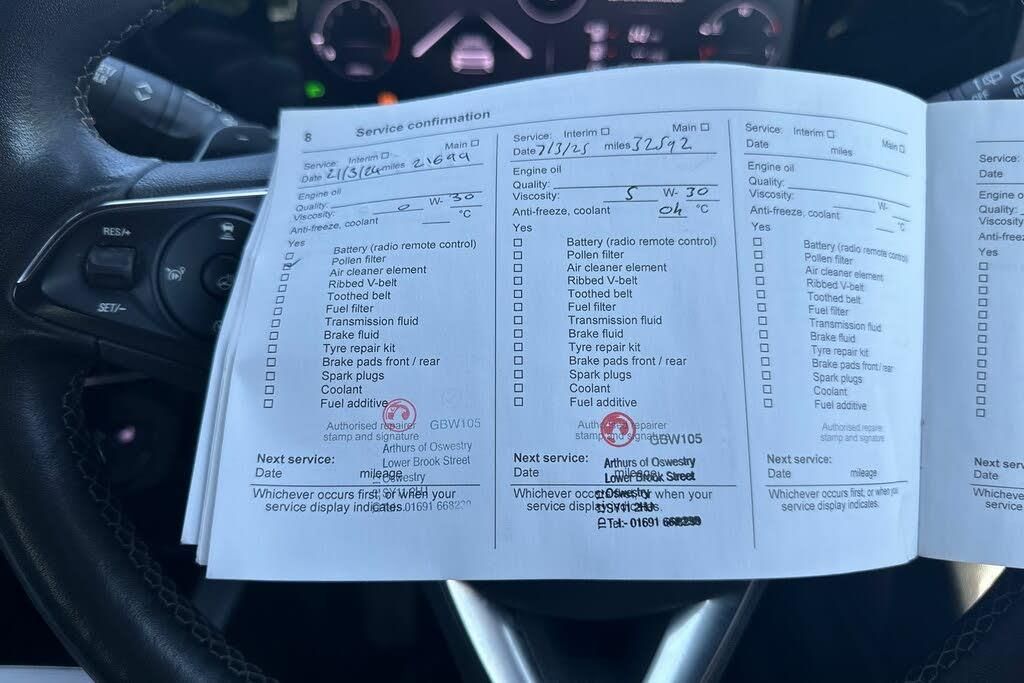 8 Service confirmation
Service: Interim Main
Date 21/3/24 miles 21699
Engine oil
Quality:
Viscosity: 0 W- 30
Anti-freeze, coolant °C
Yes
Battery (radio remote control)
Pollen filter
Air cleaner element
Ribbed V-belt
Toothed belt
Fuel filter
Transmission fluid
Brake fluid
Tyre repair kit
Brake pads front / rear
Spark plugs
Coolant
Fuel additive
Authorised repairer
stamp and signature
GBW105
Arthurs of Oswestry
Lower Brook Street
Oswestry
Tel:- 01691
Next service:
Date mileage
Whichever occurs first, or when your
service display indicates.
Service: Interim Main
Date 7/3/25 miles 32592
Engine oil
Quality:
Viscosity: 5 W- 30
Anti-freeze, coolant °C
Yes
Battery (radio remote control)
Pollen filter
Air cleaner element
Ribbed V-belt
Toothed belt
Fuel filter
Transmission fluid
Brake fluid
Tyre repair kit
Brake pads front / rear
Spark plugs
Coolant
Fuel additive
Authorised repairer
stamp and signature
GBW105
Arthurs of Oswestry
Lower Brook Street
Oswestry
SY11 2HU
Tel:- 01691
Next service:
Date mileage
Whichever occurs first, or when your
service display indicates.
Service: Interim Main
Date miles
Engine oil
Quality:
Viscosity: W-
Anti-freeze, coolant °C
Yes
Battery (radio remote control)
Pollen filter
Air cleaner element
Ribbed V-belt
Toothed belt
Fuel filter
Transmission fluid
Brake fluid
Tyre repair kit
Brake pads front / rear
Spark plugs
Coolant
Fuel additive
Authorised repairer
stamp and signature
Next service:
Date mileage
Whichever occurs first, or when your
service display indicates.
Service:
Date
Engine o
Quality:
Viscosity
Anti-freez
Yes
Next serv
Date
Whicheve
service
RES/+
SET/−
OFF